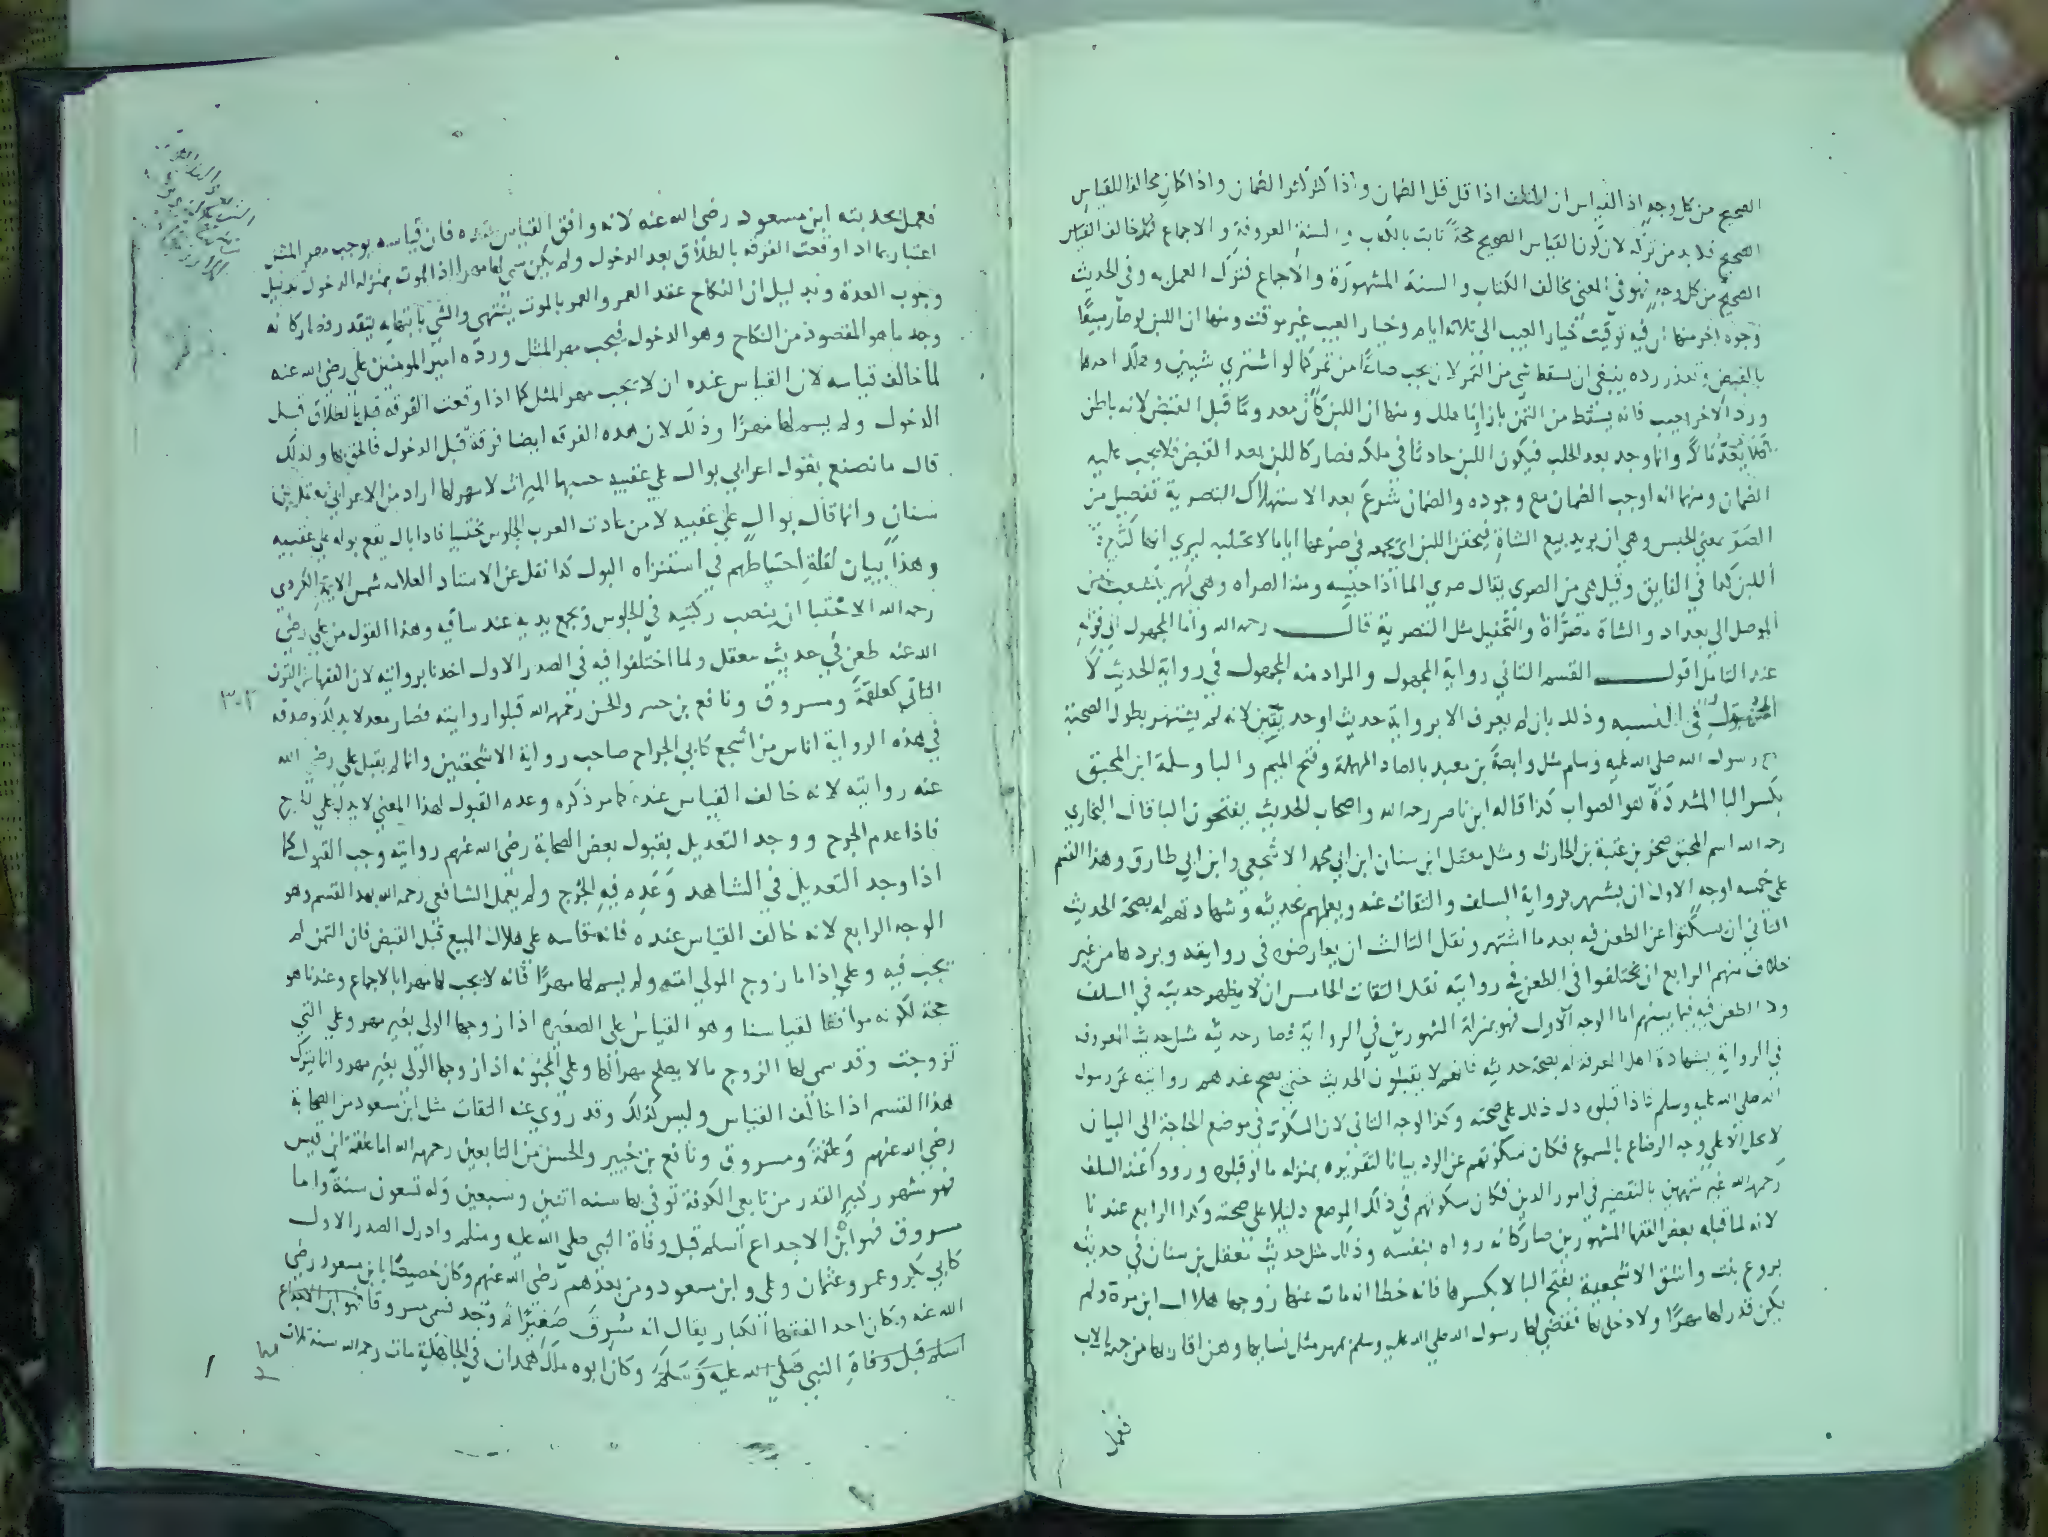 الصحيح من كل وجه اذ القياس ان المتلف اذا قل قل الضمان واذا كثر كثر الضمان واذا كان مخالفا للقياس
الصحيح فلا بد من تركه لان كون القياس الصحيح حجة ثابت بالكتاب والسنة المعروفة والاجماع فما خالف القياس
الصحيح من كل وجه فهو في المعنى يخالف الكتاب والسنة المشهورة والاجماع فترك العمل به وفي الحديث
وجوه اخر منها ان فيه توقيت خيار العيب الى ثلاثة ايام وخيار العيب غير موقت ومنها ان اللبن لو صار مبيعًا
بالقبض وتعذر رده ينبغي ان يسقط شي من الثمن لا ان يجب صاعًا من تمر كما لو اشتري شيئين وهلك احدهما
ورد الاخر بعيب فانه يسقط من الثمن بازاء ما هلك ومنها ان اللبن كان معدومًا قبل القبض لانه باطن
فلا يعد مالا وانما وجد بعد الحلب فيكون اللبن حادثا في ملكه فصار كاللبن بعد القبض فلا يجب عليه
الضمان ومنها انه اوجب الضمان مع وجوده والضمان شرع بعد الاستهلاك التصرية تفعيل من
الصَرّ بمعنى الحبس وهي ان يريد بيع الشاة فيحقن اللبن اي يجمعه في ضرعها اياما لا يحتلبه ليري انها كثيرة
اللبن كما في الفايق وقيل هي من الصري يقال صري الما اذا حبسه ومنه الصراه وهي نهر يتشعب من
الموصل الي بغداد والشاة مصرّاة والتحفيل مثل التصرية قال رحمه الله واما المجهول الي قوله
عند التامل اقول القسم الثاني رواية المجهول والمراد منه المجهول في رواية الحديث لا
المجهول في النسبه وذلك بان لم يعرف الا برواية حديث او حديثين لانه لم يشتهر بطول الصحبة
مع رسول الله صلى الله عليه وسلم مثل وابصة بن معبد بالصاد المهملة وفتح الميم والبا وسلمة ابن المحبق
بكسر البا المشددة هو الصواب كذا قاله ابن ناصر رحمه الله واصحاب الحديث يفتحون البا قال البخاري
رحمه الله اسم المحبق صخر بن عتبة بن الحارث ومثل معقل ابن سنان ابن ابي محمد الاشجعي وابن ابي طارق وهذا القسم
على خمسه اوجه الاول ان يشهر برواية السلف والثقات عنه وبعملهم بحديثه وشهادتهم له بصحة الحديث
الثاني ان يسكتوا عن الطعن فيه بعد ما اشتهر ونقل الثالث ان يعارضوه في روايته ويردها من غير
خلاف منهم الرابع ان يختلفوا في الطعن في روايته نقل الثقات الخامس ان لا يظهر حديثه في السلف
ولا الطعن فيه فيما بينهم اما الوجه الاول فهو بمنزلة المشهورين في الرواية فصار حديثه مثل حديث المعروف
في الرواية بشهادة اهل المعرفة له بصحة حديثه فانهم لا يقبلون الحديث حتى يصح عندهم روايته عن رسول
الله صلى الله عليه وسلم فاذا قبلوه دل ذلك على صحته وكذا الوجه الثاني لان السكوت في موضع الحاجة الى البيان
لا يحل الا على وجه الرضاع بالمسموع فكان سكوتهم عن الرد بيانا لتقريره بمنزلة ما لو قبلوه ورووا عنه السلف
رحمهم الله غير متهمين بالتقصير في امور الدين فكان سكوتهم في ذلك الموضع دليلا على صحته وكذا الرابع عندنا
لانه لما قبله بعض الفقها المشهورين صار كانه رواه بنفسه وذلك مثل حديث معقل بن سنان في حديث
بروع بنت واشق الاشجعية بفتح البا لا بكسرها فانه خطا انه مات عنها زوجها هلال ابن مرة ولم
يكن قدر لها مهرًا ولا دخل بها فقضى لها رسول الله صلى الله عليه وسلم بمهر مثل نسايها وهن اقاربها من جهة الاب
فعمل
فعمل بحديثه ابن مسعود رضي الله عنه لانه وافق القياس عنده فان قياسه يوجب مهر المثل
اعتبارا بما اذا وقعت الفرقة بالطلاق بعد الدخول ولم يكن سمى لها مهرا اذ الموت بمنزلة الدخول بدليل
وجوب العدة وبدليل ان النكاح عقد العمر والعمر بالموت ينتهي والشي بانتهايه يتقرر فصار كانه
وجد ما هو المقصود من النكاح وهو الدخول فيجب مهر المثل ورده امير المومنين علي رضي الله عنه
لما خالف قياسه لان القياس عنده ان لا يجب مهر المثل كما اذا وقعت الفرقة قبل بالطلاق قبل
الدخول ولم يسم لها مهرًا وذلك لان هذه الفرقه ايضا فرقة قبل الدخول فالحق بها ولذلك
قال ما نصنع بقول اعرابي بوال على عقبيه حسبها الميراث لا مهر لها اراد من الاعرابي معقل بن
سنان وانما قال بوال على عقبيه لا من عادت العرب الجلوس محتبيا فاذا بال يقع بوله علي عقبيه
وهذا بيان لقلة احتياطهم في استنزاه البول كذا نقل عن الاستاد العلامه شمس الايمة الكردري
رحمه الله الاحتبا ان ينصب ركبتيه في الجلوس ويجمع يديه عند ساقيه وهذا القول من علي رضي
الله عنه طعن في حديث معقل ولما اختلفوا فيه في الصدر الاول اخذنا بروايته لان الفقها من القرن
الثاني كعلقمة ومسروق ونافع بن جبير والحسن رحمهم الله قبلوا روايته فصار معدلا بذلك وصدقه
في هذه الرواية اناس من اشجع كابي الجراح صاحب رواية الاشجعيين وانما لم يقبل علي رضي الله
عنه روايته لانه خالف القياس عنده كما مر ذكره وعدم القبول لهذا المعنى لا يدل على الجرح
فاذا عدم الجرح ووجد التعديل بقبول بعض الصحابة رضي الله عنهم روايته وجب القبول كما
اذا وجد التعديل في الشاهد وعدم فيه الجرح ولم يعمل الشافعي رحمه الله بهذا القسم وهو
الوجه الرابع لانه خالف القياس عنده فانه قاسه على هلاك المبيع قبل القبض فان الثمن لم
يجب فيه وعلى اذا ما زوج المولي امته ولم يسم لها مهرًا فانه لا يجب لها مهرا بالاجماع وعندنا هو
حجة لكونه موافقا لقياسنا وهو القياس على الصغيره اذا زوجها الولي بغير مهر وعلى التي
تزوجت وقد سمى لها الزوج ما لا يصلح مهرا لها وعلى المجنونه اذا زوجها الولي بغير مهر وانما يترك
هذا القسم اذا خالف القياس وليس كذلك وقد روي عنه الثقات مثل ابن مسعود من الصحابة
رضي الله عنهم وعلقمة ومسروق ونافع بن جبير والحسن من التابعين رحمهم الله اما علقمة ابن قيس
فهو مشهور كبير القدر من تابعي الكوفة توفي بها سنه اثنين وسبعين وله تسعون سنة واما
مسروق فهو ابن الاجداع اسلم قبل وفاة النبي صلى الله عليه وسلم وادرك الصدر الاول
كابي بكر وعمر وعثمان وعلي وابن مسعود ومن بعدهم رضي الله عنهم وكان خصيصًا بابن مسعود رضي
الله عنه وكان احد الفقها الكبار يقال انه سُرق صغيرًا ثم وجد فسمي مسروقا فهو ابن الاجداع
اسلم قبل وفاة النبي صلى الله عليه وسلم وكان ابوه ملك همدان في الجاهلية مات رحمه الله سنة ثلاث
٣٠٢